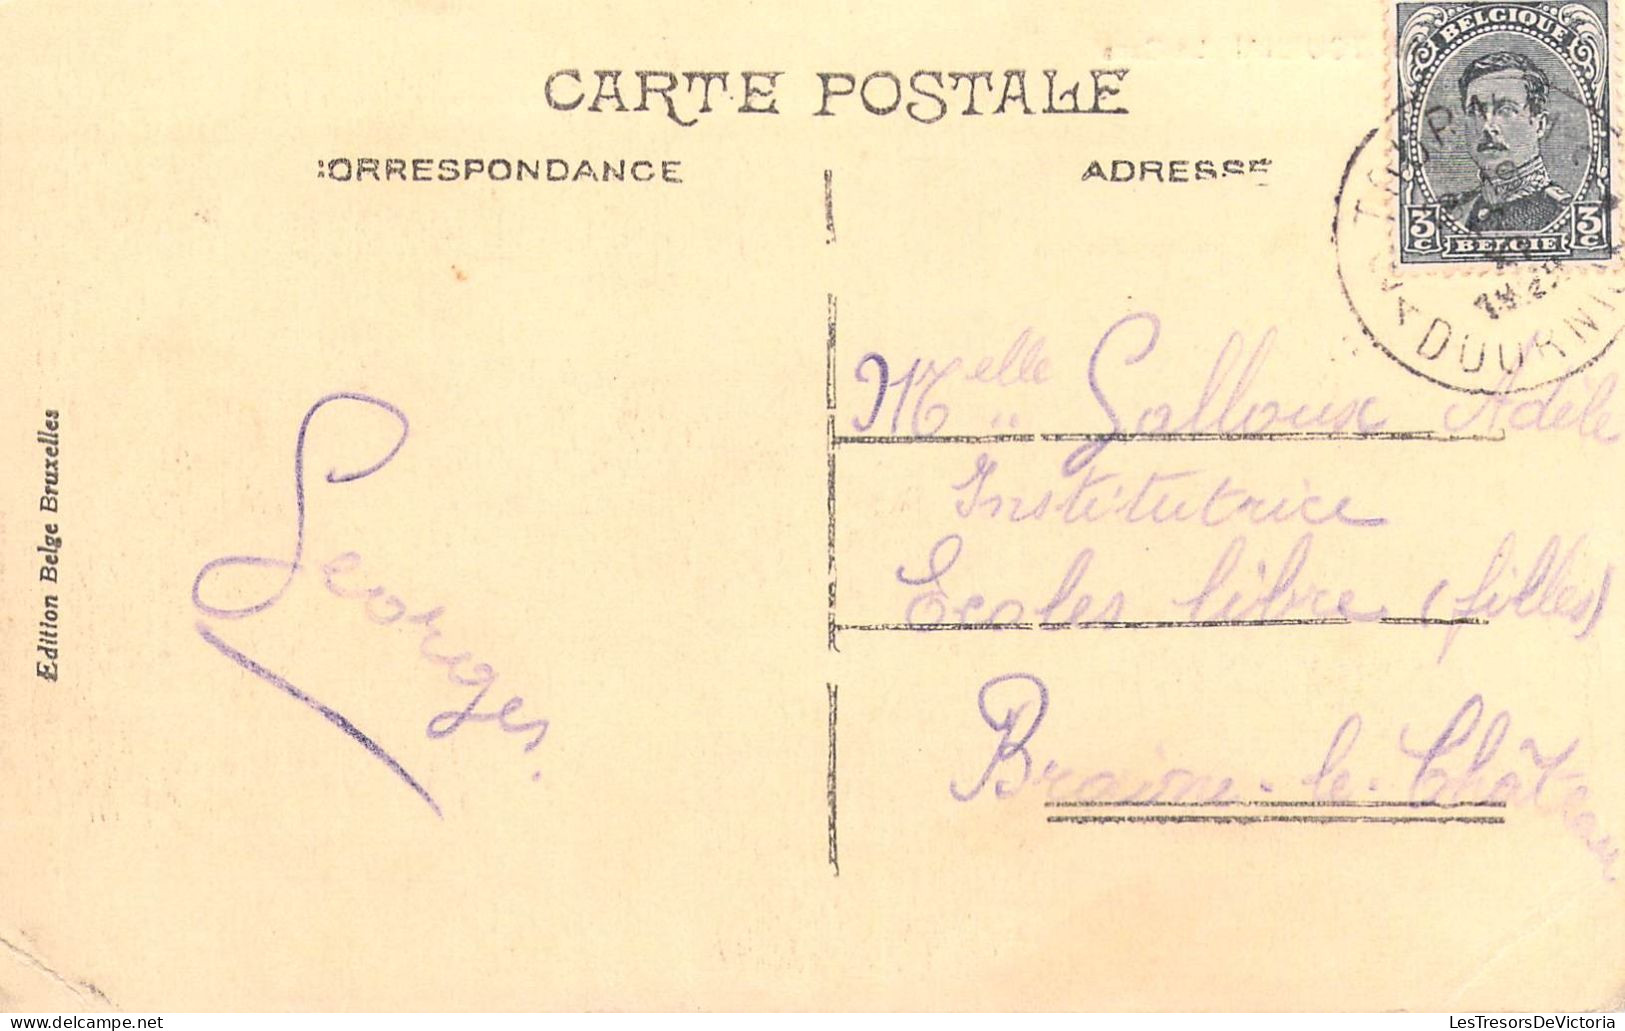 CARTE POSTALE
CORRESPONDANCE
ADRESSE
BELGIQUE
3c
BELGIE
3c
TOURNAI
DOORNIK
Edition Belge Bruxelles
Georges.
Melle Galloux Adèle
Institutrice
Ecoles libres (filles)
Braine-le-Château
LesTresorsDeVictoria